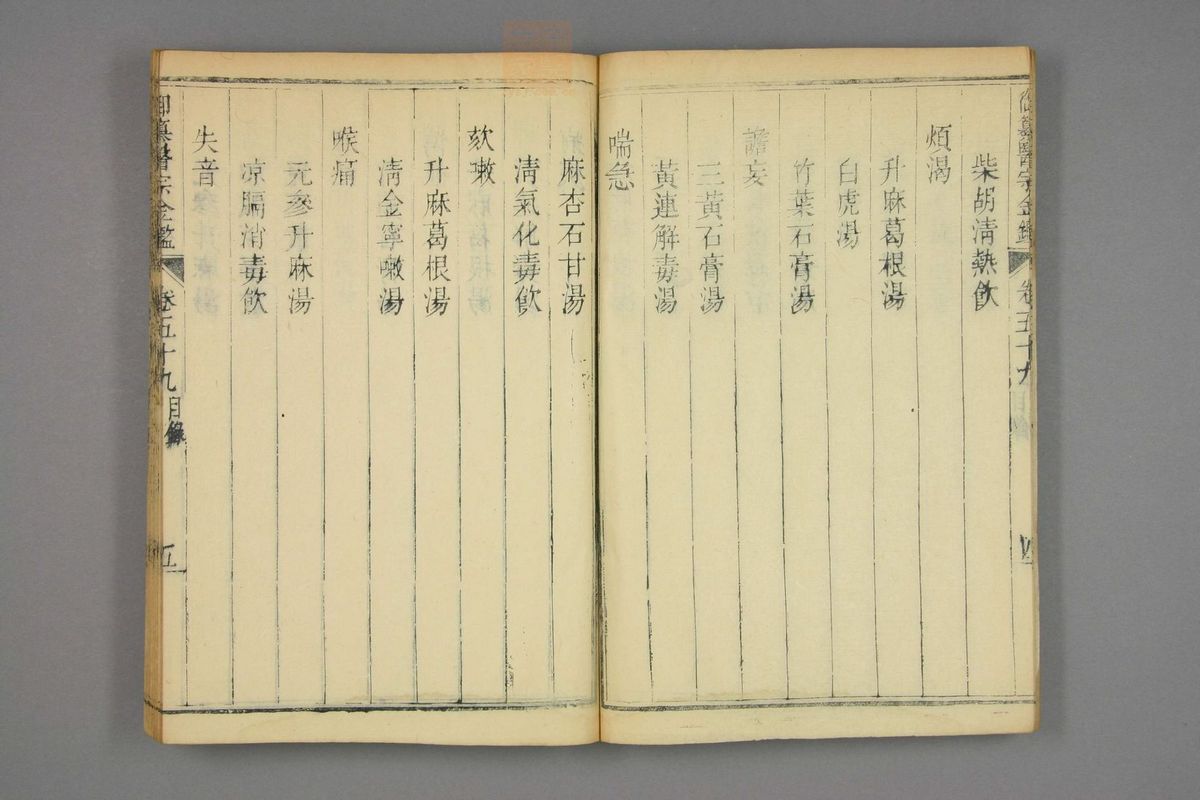 御纂醫宗金鑑 卷五十九
柴胡清熱飲
煩渴
升麻葛根湯
白虎湯
竹葉石膏湯
譫妄
三黃石膏湯
黃連解毒湯
喘急
麻杏石甘湯
清氣化毒飲
欬嗽
升麻葛根湯
清金寧嗽湯
喉痛
元參升麻湯
凉膈消毒飲
失音
御纂醫宗金鑑 卷五十九 目錄 五